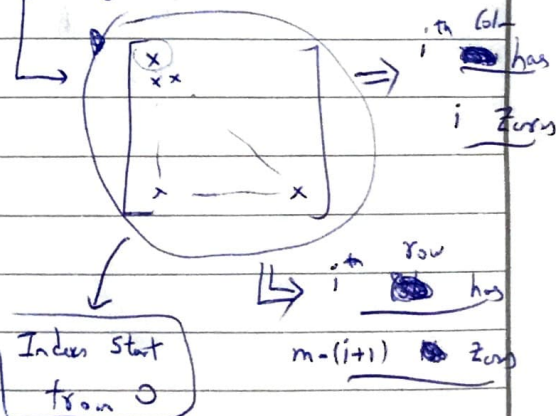 x
x x
x x
⇒ ith Col
has
i Zeros
ith row
has
m-(i+1) Zeros
Index Start
from 0